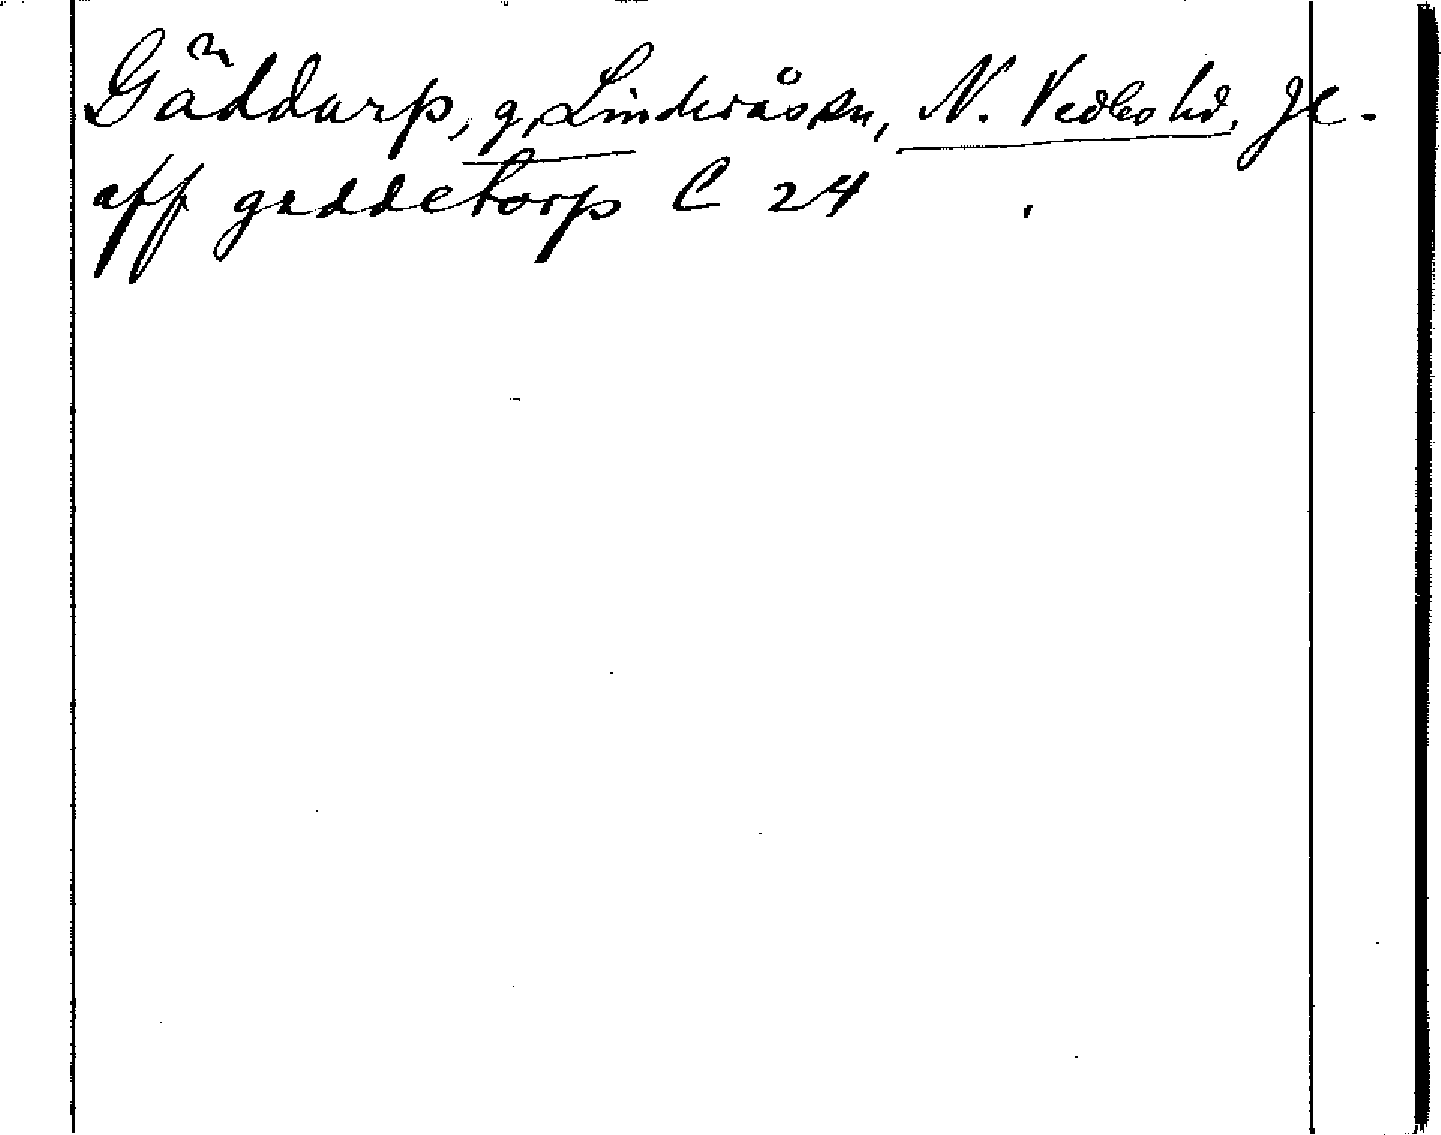 Gäddarp, g, Linderås sn, N. Vedbo hd, Jl.
aff gæddetorp C 24